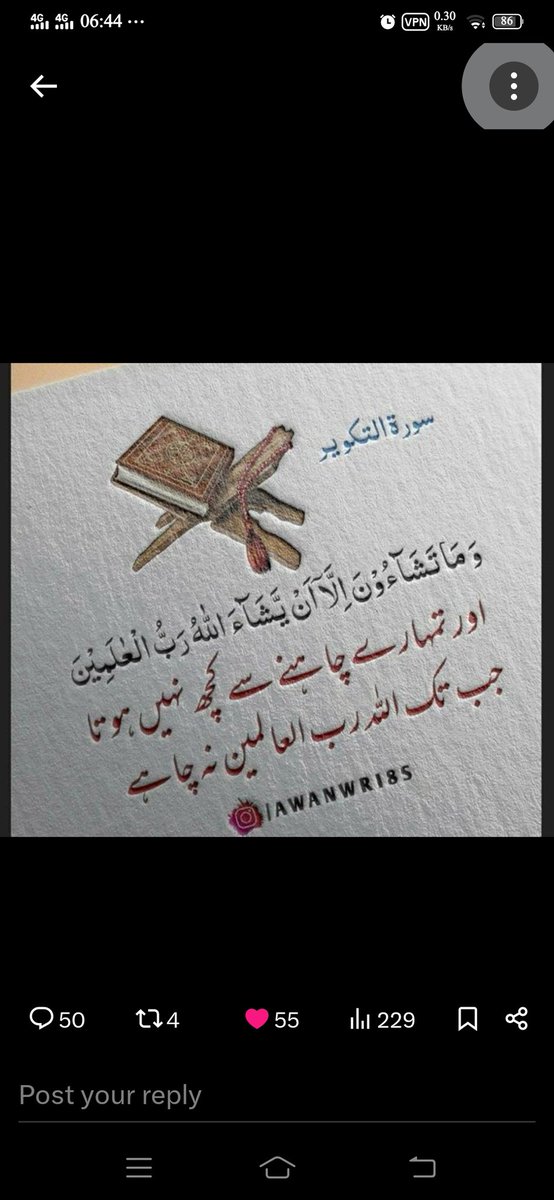 4G 4G 06:44 ... VPN 0.30 KB/s 86
سورة التكوير
وَمَا تَشَآءُوْنَ اِلَّآ اَنْ يَّشَآءَ اللّٰهُ رَبُّ الْعٰلَمِيْنَ
اور تمہارے چاہنے سے کچھ نہیں ہوتا
جب تک اللہ رب العالمین نہ چاہے
|AWANWRI8S
50 4 55 229
Post your reply